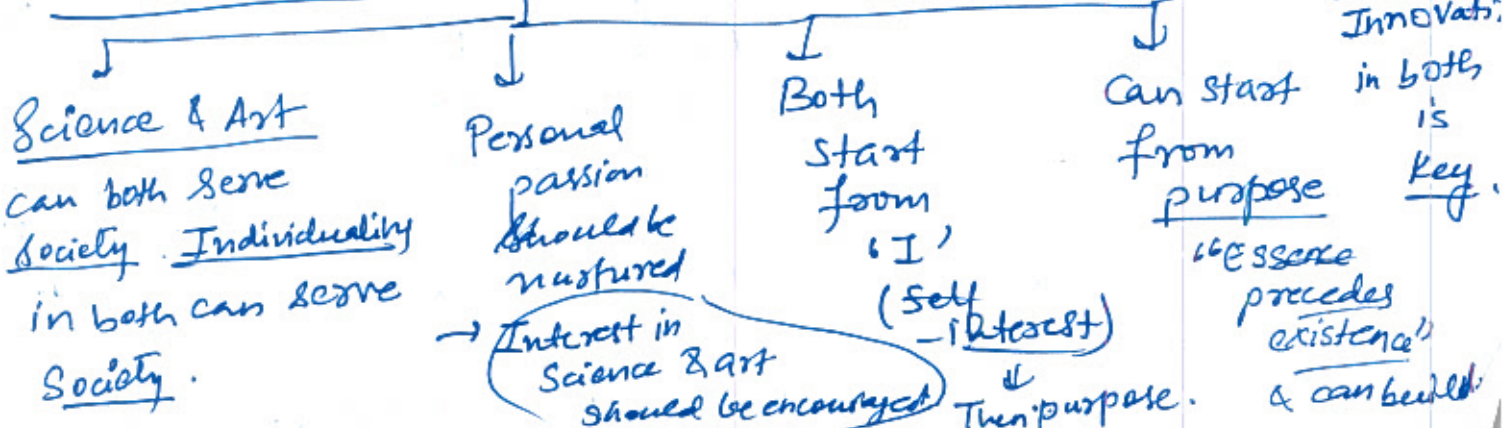 Science & Art
can both serve
Society. Individuality
in both can serve
Society.
Personal
passion
should be
nurtured
→ Interest in
Science & art
should be encouraged
Both
start
from
'I'
(self
-interest)
↓
Then purpose.
Can start
from
purpose
"Essence
precedes
existence"
& can build
in both
is
key.